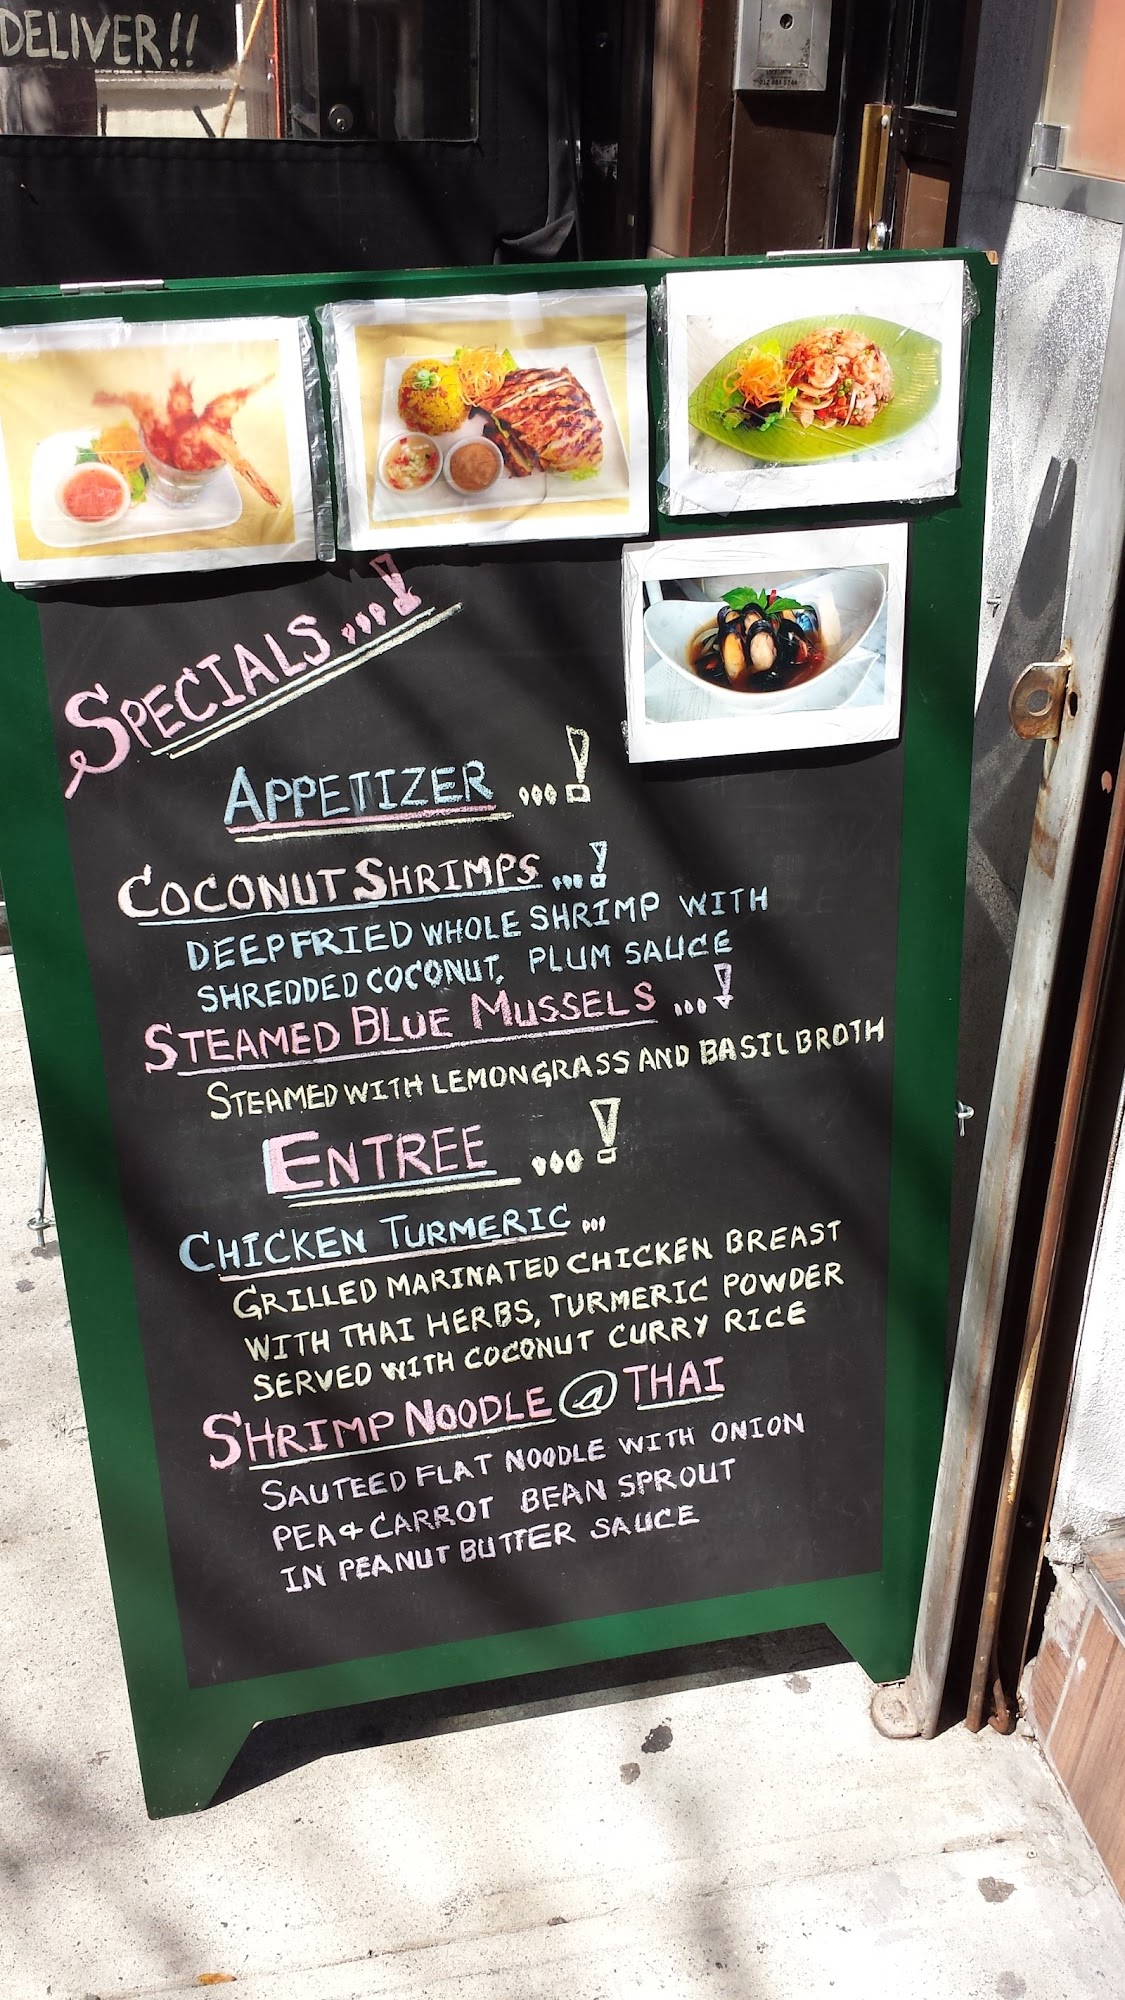 DELIVER!!
SPECIALS...!
APPETIZER ...!
COCONUT SHRIMPS ...!
DEEPFRIED WHOLE SHRIMP WITH
SHREDDED COCONUT, PLUM SAUCE
STEAMED BLUE MUSSELS ...!
STEAMED WITH LEMONGRASS AND BASIL BROTH
ENTREE ...!
CHICKEN TURMERIC ...
GRILLED MARINATED CHICKEN BREAST
WITH THAI HERBS, TURMERIC POWDER
SERVED WITH COCONUT CURRY RICE
SHRIMP NOODLE @ THAI
SAUTEED FLAT NOODLE WITH ONION
PEA & CARROT BEAN SPROUT
IN PEANUT BUTTER SAUCE